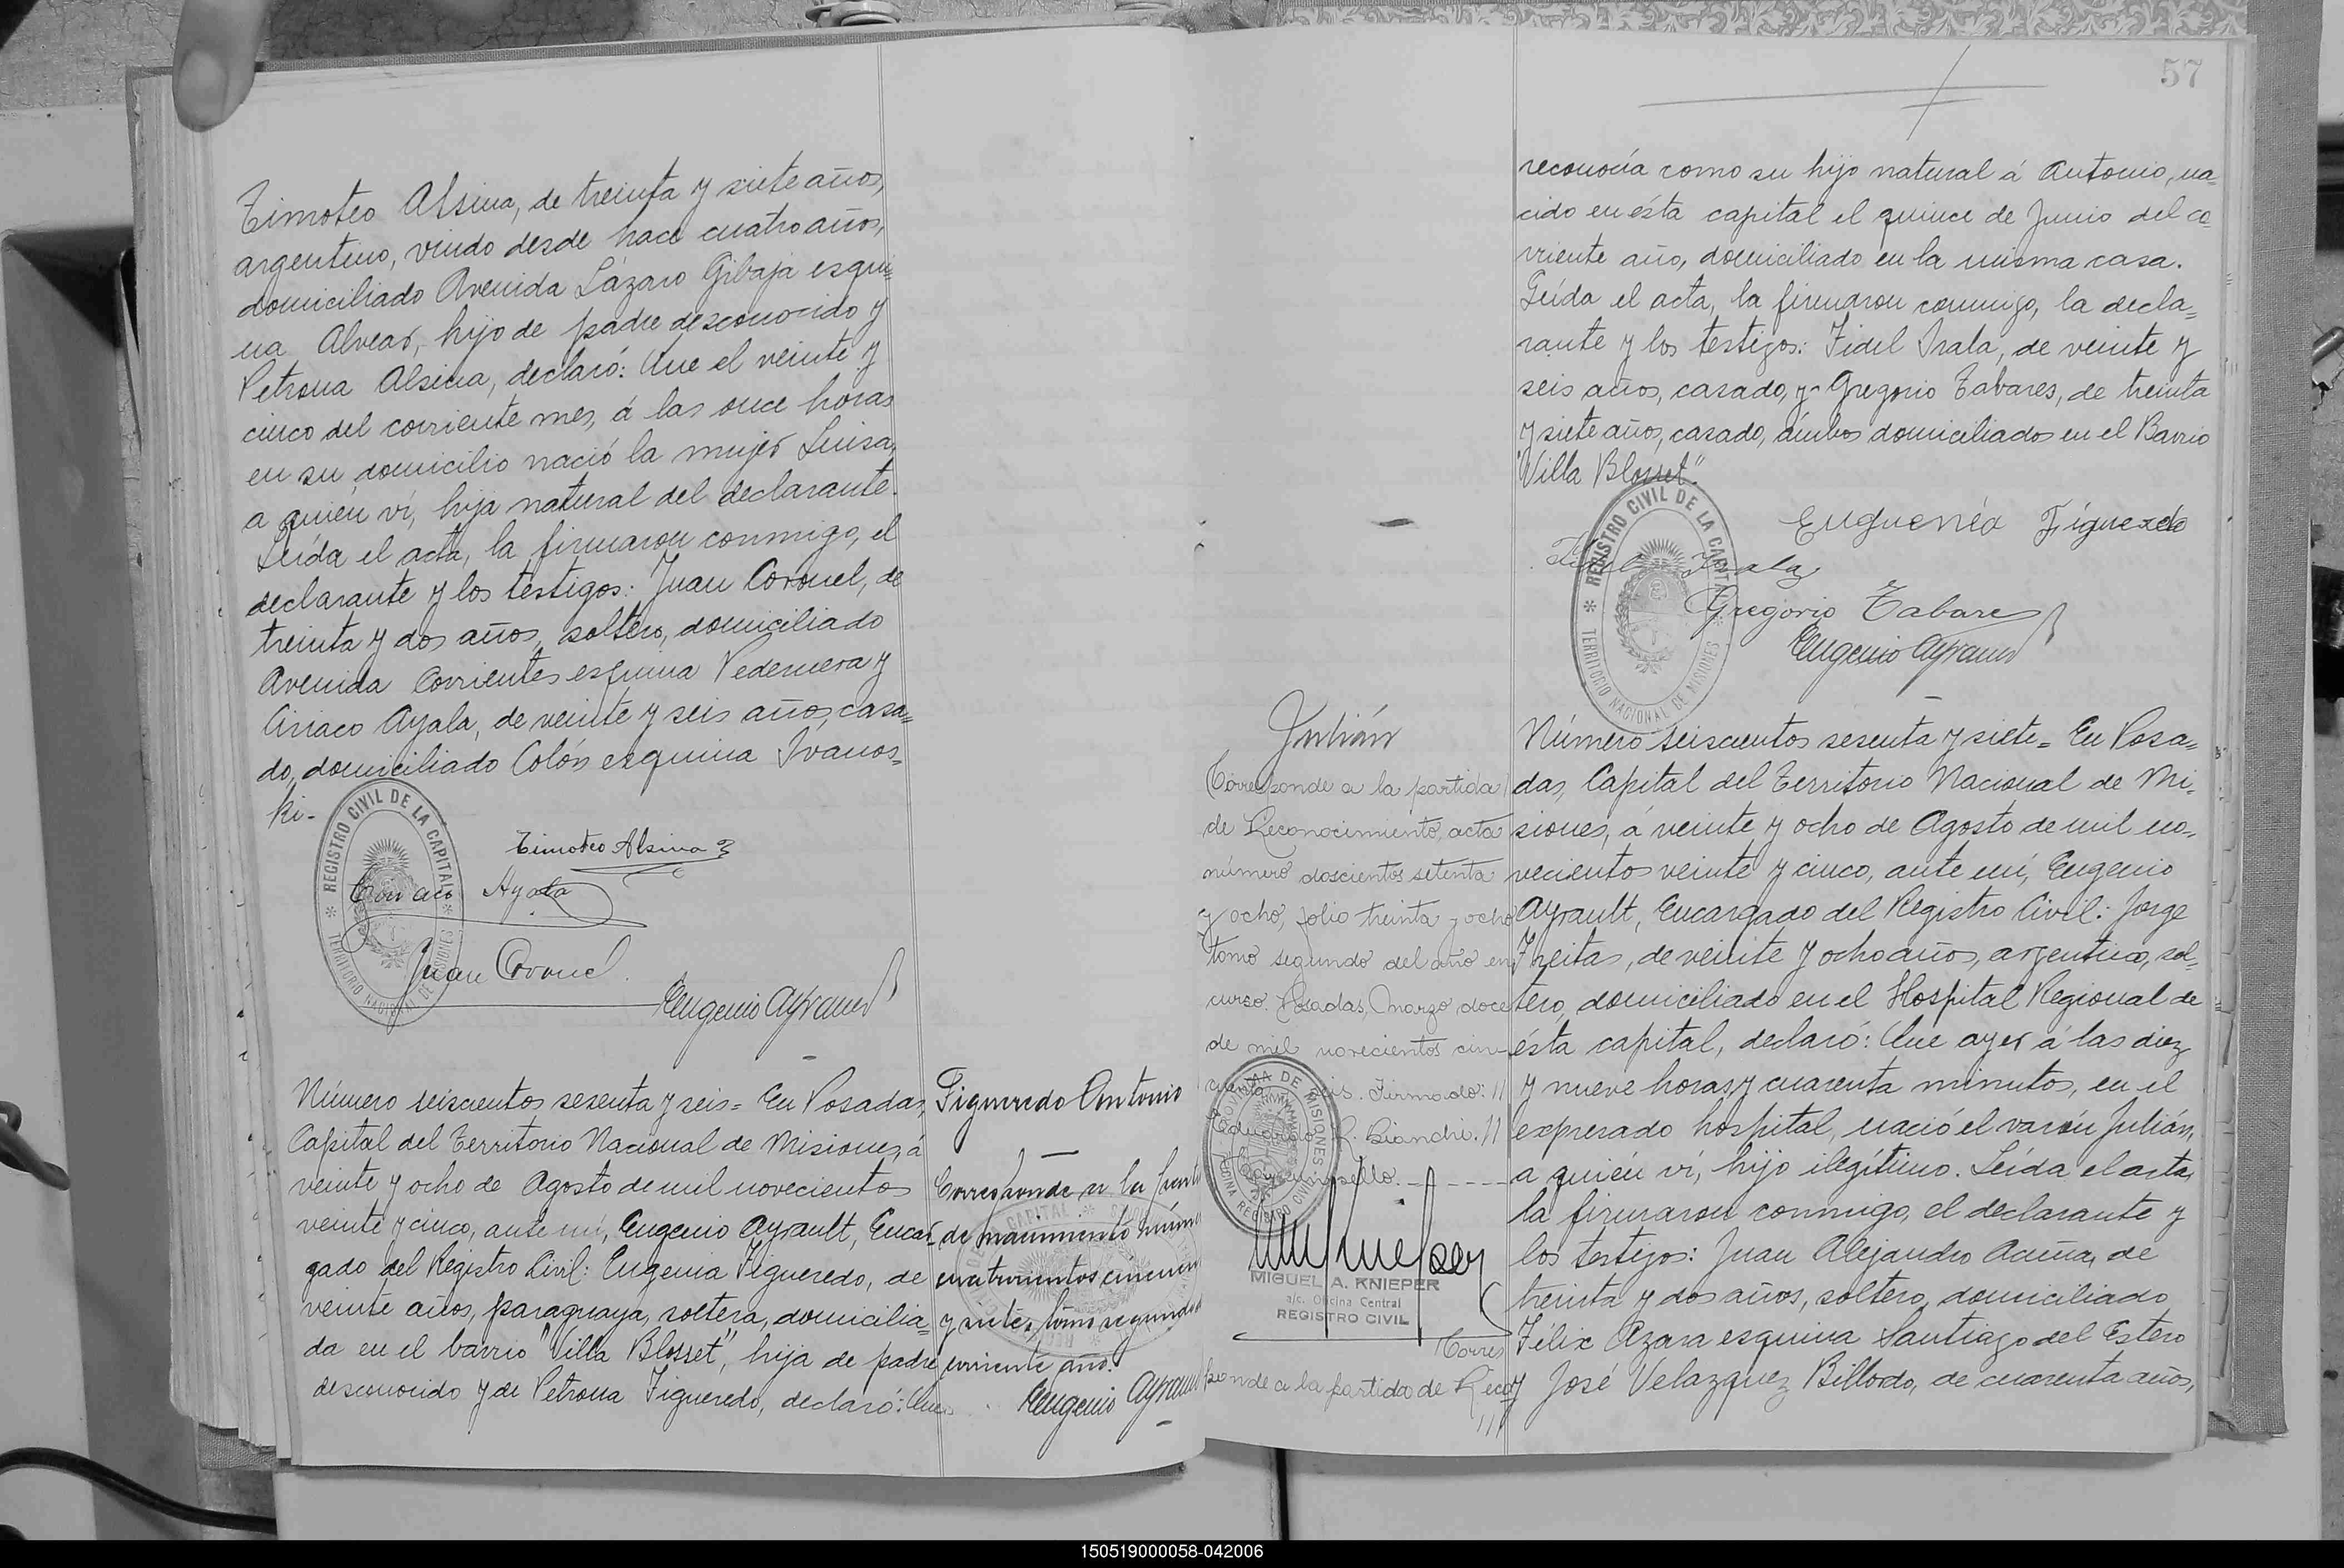 Timoteo Alsina, de treinta y siete años,
argentino, viudo desde hace cuatro años,
domiciliado Avenida Lázaro Gibaja esqui=
na Alvear, hijo de padre desconocido y
Petrona Alsina, declaró: Que el veinte y
cinco del corriente mes, á las once horas
en su domicilio nació la mujer Luisa,
a quién ví, hija natural del declarante.
Leída el acta, la firmaron conmigo, el
declarante y los testigos: Juan Coronel, de
treinta y dos años, soltero, domiciliado
Avenida Corrientes esquina Pedernera y
Ciriaco Ayala, de veinte y seis años, casa=
do, domiciliado Colón esquina Ivanos=
ki-
REGISTRO CIVIL DE LA CAPITAL
TERRITORIO NACIONAL DE MISIONES
Timoteo Alsina
Ciriaco Ayala
Juan Coronel
Eugenio Ayrault
Número seiscientos sesenta y seis= En Posadas,
Capital del Territorio Nacional de Misiones, á
veinte y ocho de Agosto de mil novecientos
veinte y cinco, ante mí, Eugenio Ayrault, Encar=
gado del Registro Civil: Eugenia Figueredo, de
veinte años, paraguaya, soltera, domicilia=
da en el barrio "Villa Blosset", hija de padre
desconocido y de Petrona Figueredo, declaró: Que
Figueredo Antonio
Corresponde a la
de nacimiento
cuatrocientos
y siete, tomo segundo
corriente año.
Eugenio Ayrault
57
reconocía como su hijo natural á Antonio, na=
cido en ésta capital el quince de Junio del co
rriente año, domiciliado en la misma casa.
Leída el acta, la firmaron conmigo, la decla=
rante y los testigos: Fidel Irala, de veinte y
seis años, casado, y Gregorio Tabares, de treinta
y siete años, casado, ámbos domiciliados en el Barrio
"Villa Blosset".
REGISTRO CIVIL DE LA CAPITAL
TERRITORIO NACIONAL DE MISIONES
Euguenia Figueredo
Fidel Irala
Gregorio Tabares
Eugenio Ayrault
Julián
Corresponde a la partida
de Reconocimiento, acta
número doscientos setenta
y ocho, folio treinta y ocho
tomo segundo del año en
curso. Posadas, Marzo doce
de mil novecientos cin-
Firmado: //
Eduardo R. Bianchi. //
PROVINCIA DE MISIONES
REGISTRO CIVIL
MIGUEL A. KNIEPER
a/c. Oficina Central
REGISTRO CIVIL
Corres
ponde a la partida de Reco
///
Número seiscientos sesenta y siete= En Posa=
das, Capital del Territorio Nacional de Mi=
siones, á veinte y ocho de Agosto de mil no=
vecientos veinte y cinco, ante mí, Eugenio
Ayrault, Encargado del Registro Civil: Jorge
Freitas, de veinte y ocho años, argentino, sol=
tero, domiciliado en el Hospital Regional de
ésta capital, declaró: Que ayer á las diez
y nueve horas y cuarenta minutos, en el
expresado hospital, nació el varón Julián,
a quién ví, hijo ilegítimo. Leída el acta,
la firmaron conmigo, el declarante y
los testigos: Juan Alejandro Acuña, de
treinta y dos años, soltero, domiciliado
Félix Azara esquina Santiago del Estero
y José Velazquez Billordo, de cuarenta años,
150519000058-042006